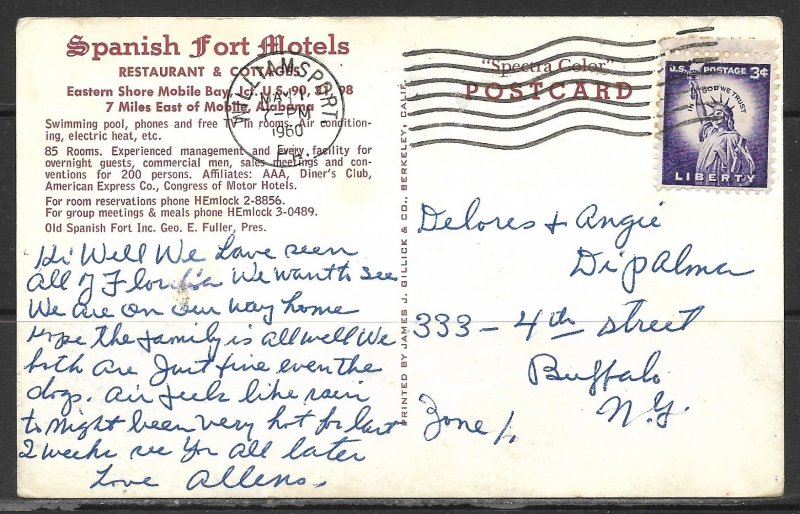 Spanish Fort Motels
RESTAURANT & COTTAGES
Eastern Shore Mobile Bay, Jct. U.S. 90, 31, 98
7 Miles East of Mobile, Alabama
Swimming pool, phones and free TV in rooms. Air condition-
ing, electric heat, etc.
85 Rooms. Experienced management and every facility for
overnight guests, commercial men, sales meetings and con-
ventions for 200 persons. Affiliates: AAA, Diner's Club,
American Express Co., Congress of Motor Hotels.
For room reservations phone HEmlock 2-8856.
For group meetings & meals phone HEmlock 3-0489.
Old Spanish Fort Inc. Geo. E. Fuller, Pres.
WILLIAMSPORT
MAY
7-PM
1960
PA.
"Spectra Color"
POSTCARD
U.S. POSTAGE 3¢
IN GOD WE TRUST
LIBERTY
PRINTED BY JAMES J. GILLICK & CO., BERKELEY, CALIF.
Hi Well We have seen
all of Florida We want to see
We are on our way home
Hope the family is all well We
both are Just fine even the
dogs. air feels like rain
to night been very hot for last
2 weeks see Yr all later
Love Allens.
Delores + Angie
Dipalma
333 - 4th street
Buffalo
Zone 1. N.Y.